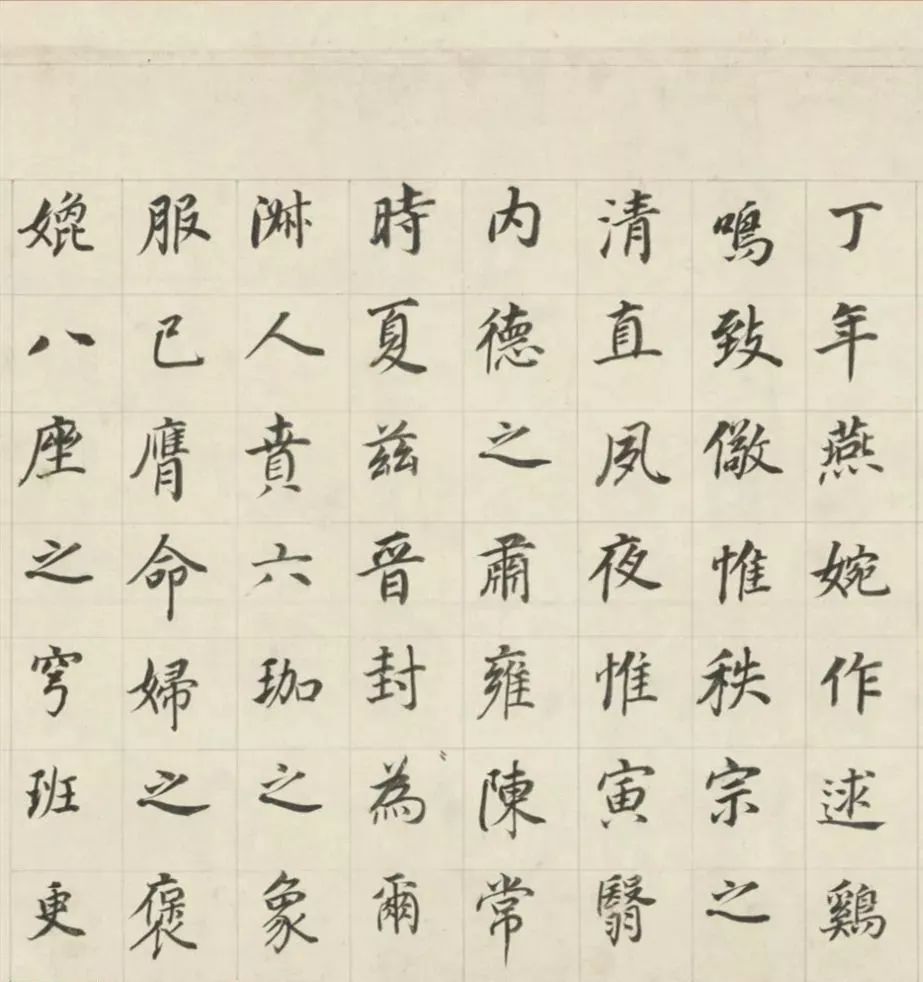 丁年燕婉作逑鷄
鳴致儆惟秩宗之
清直夙夜惟寅翳
内德之肅雍陳常
時夏兹晉封為爾
淋人賁六珈之象
服已膺命婦之褒
媲八座之穹班更